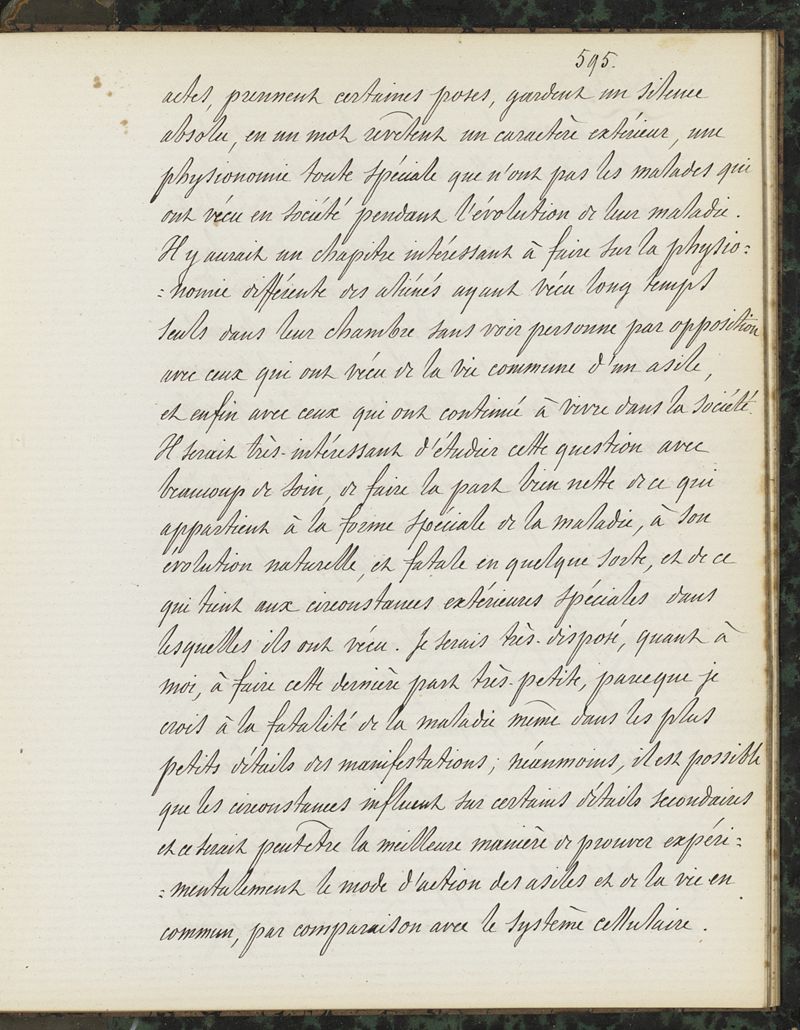 595.
actes, prennent certaines poses, gardent un silence
absolu, en un mot revêtent un caractère extérieur, une
physionomie toute spéciale que n'ont pas les malades qui
ont vécu en société pendant l'évolution de leur maladie.
Il y aurait un chapitre intéressant à faire sur la physio=
=nomie différente des aliénés ayant vécu long temps
seuls dans leur chambre sans voir personne par opposition
avec ceux qui ont vécu de la vie commune d'un asile,
et enfin avec ceux qui ont continué à vivre dans la société.
Il serait très-intéressant d'étudier cette question avec
beaucoup de soin, de faire la part bien nette de ce qui
appartient à la forme spéciale de la maladie, à son
évolution naturelle, et fatale en quelque sorte, et de ce
qui tient aux circonstances extérieures spéciales dans
lesquelles ils ont vécu. Je serais très-disposé, quant à
moi, à faire cette dernière part très-petite, parceque je
crois à la fatalité de la maladie même dans les plus
petits détails des manifestations; néanmoins, il est possible
que les circonstances influent sur certains détails secondaires
et ce serait peut être la meilleure manière de prouver expéri=
=mentalement le mode d'action des asiles et de la vie en
commun, par comparaison avec le système cellulaire.